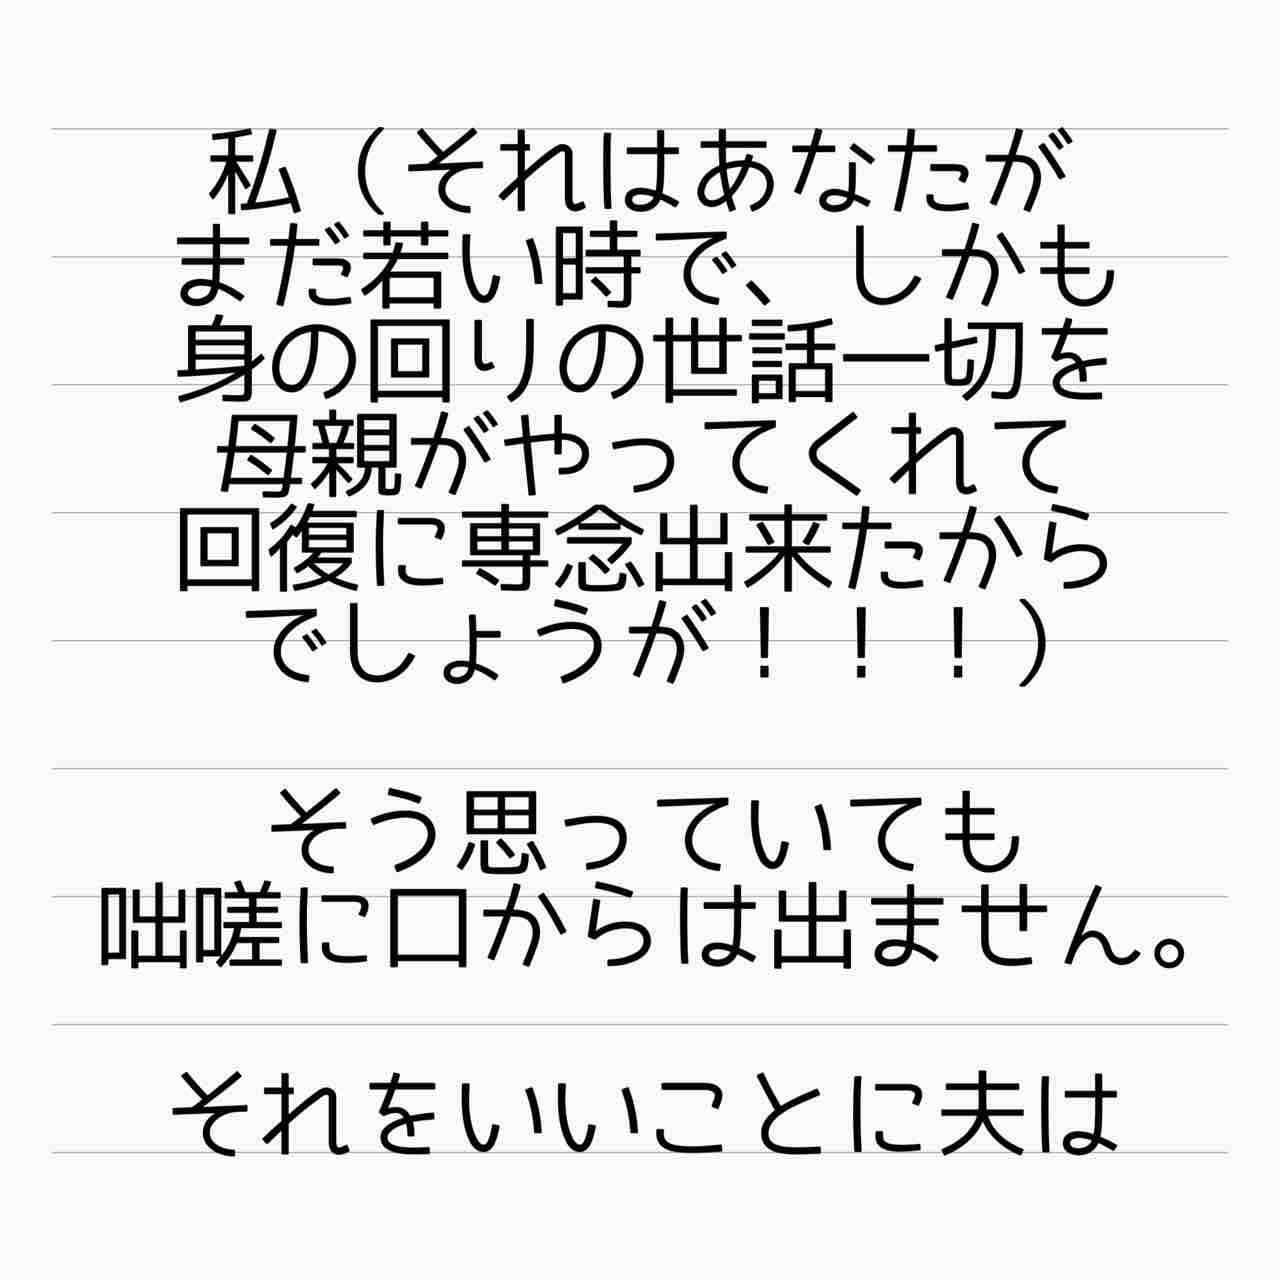 私（それはあなたが
まだ若い時で、しかも
身の回りの世話一切を
母親がやってくれて
回復に専念出来たから
でしょうが！！！）
そう思っていても
咄嗟に口からは出ません。
それをいいことに夫は